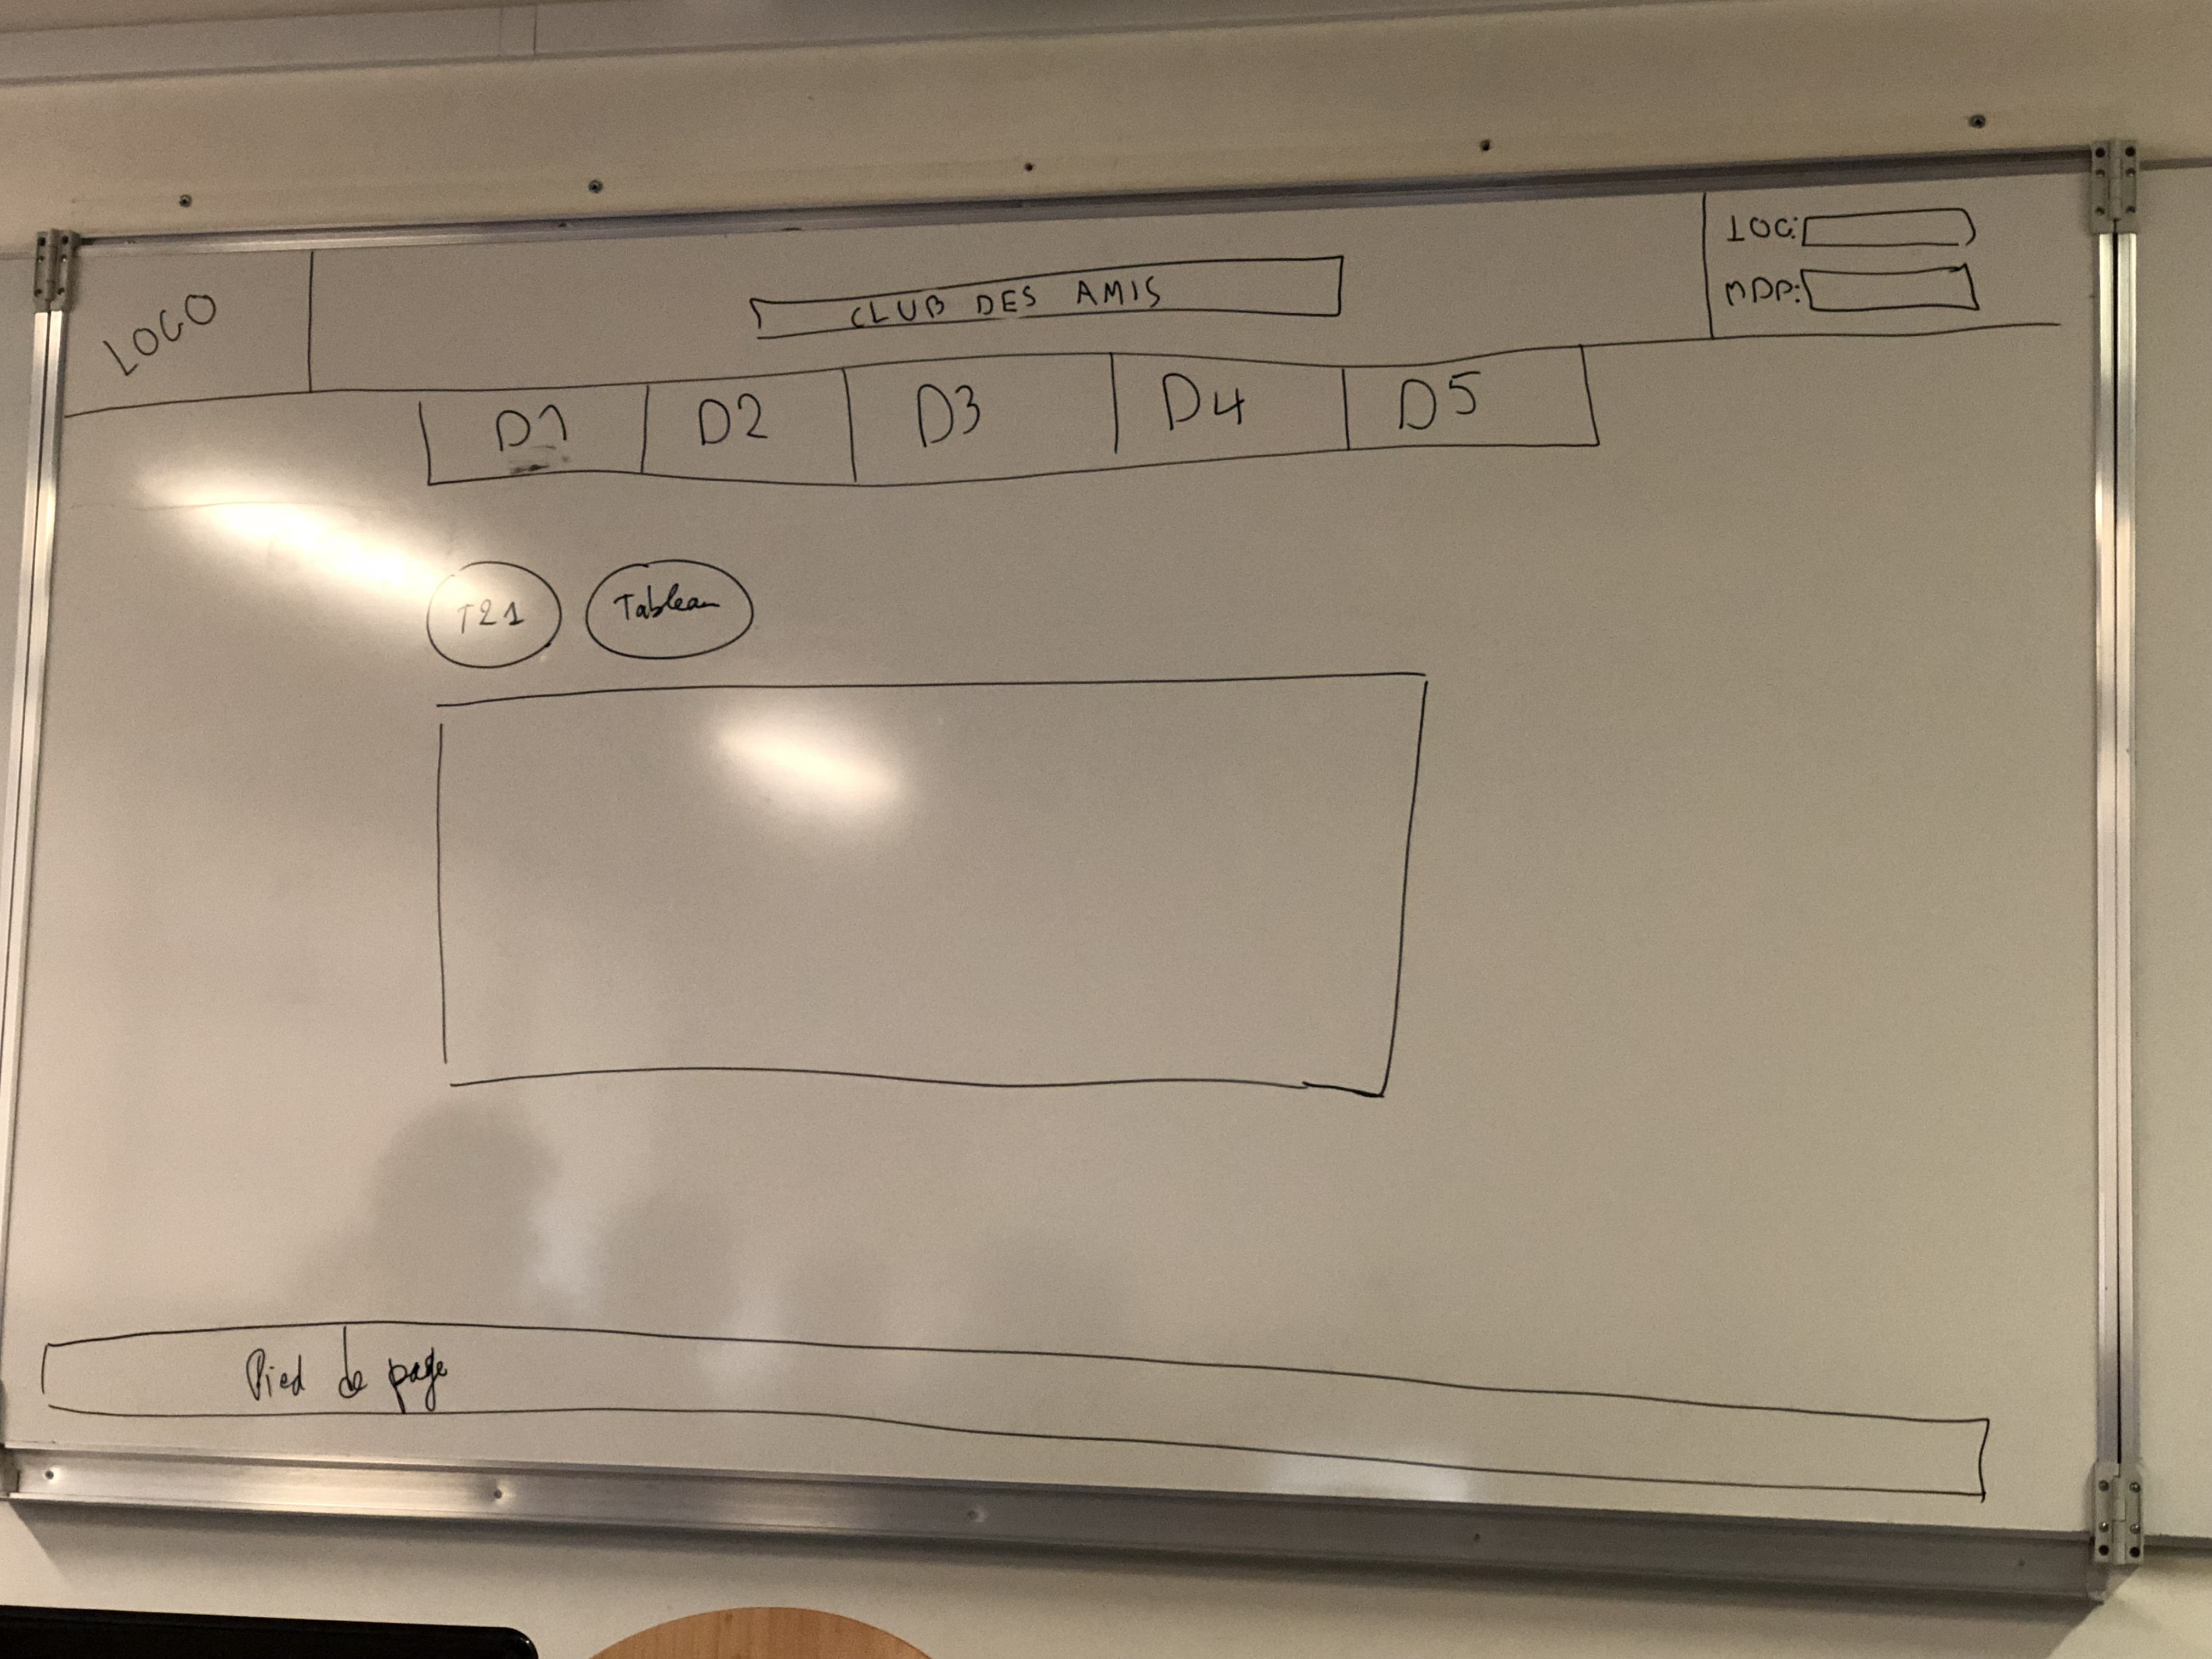 LOGO
CLUB DES AMIS
LOG:
MDP:
D1 D2 D3 D4 D5
T21 Tableau
Pied de page